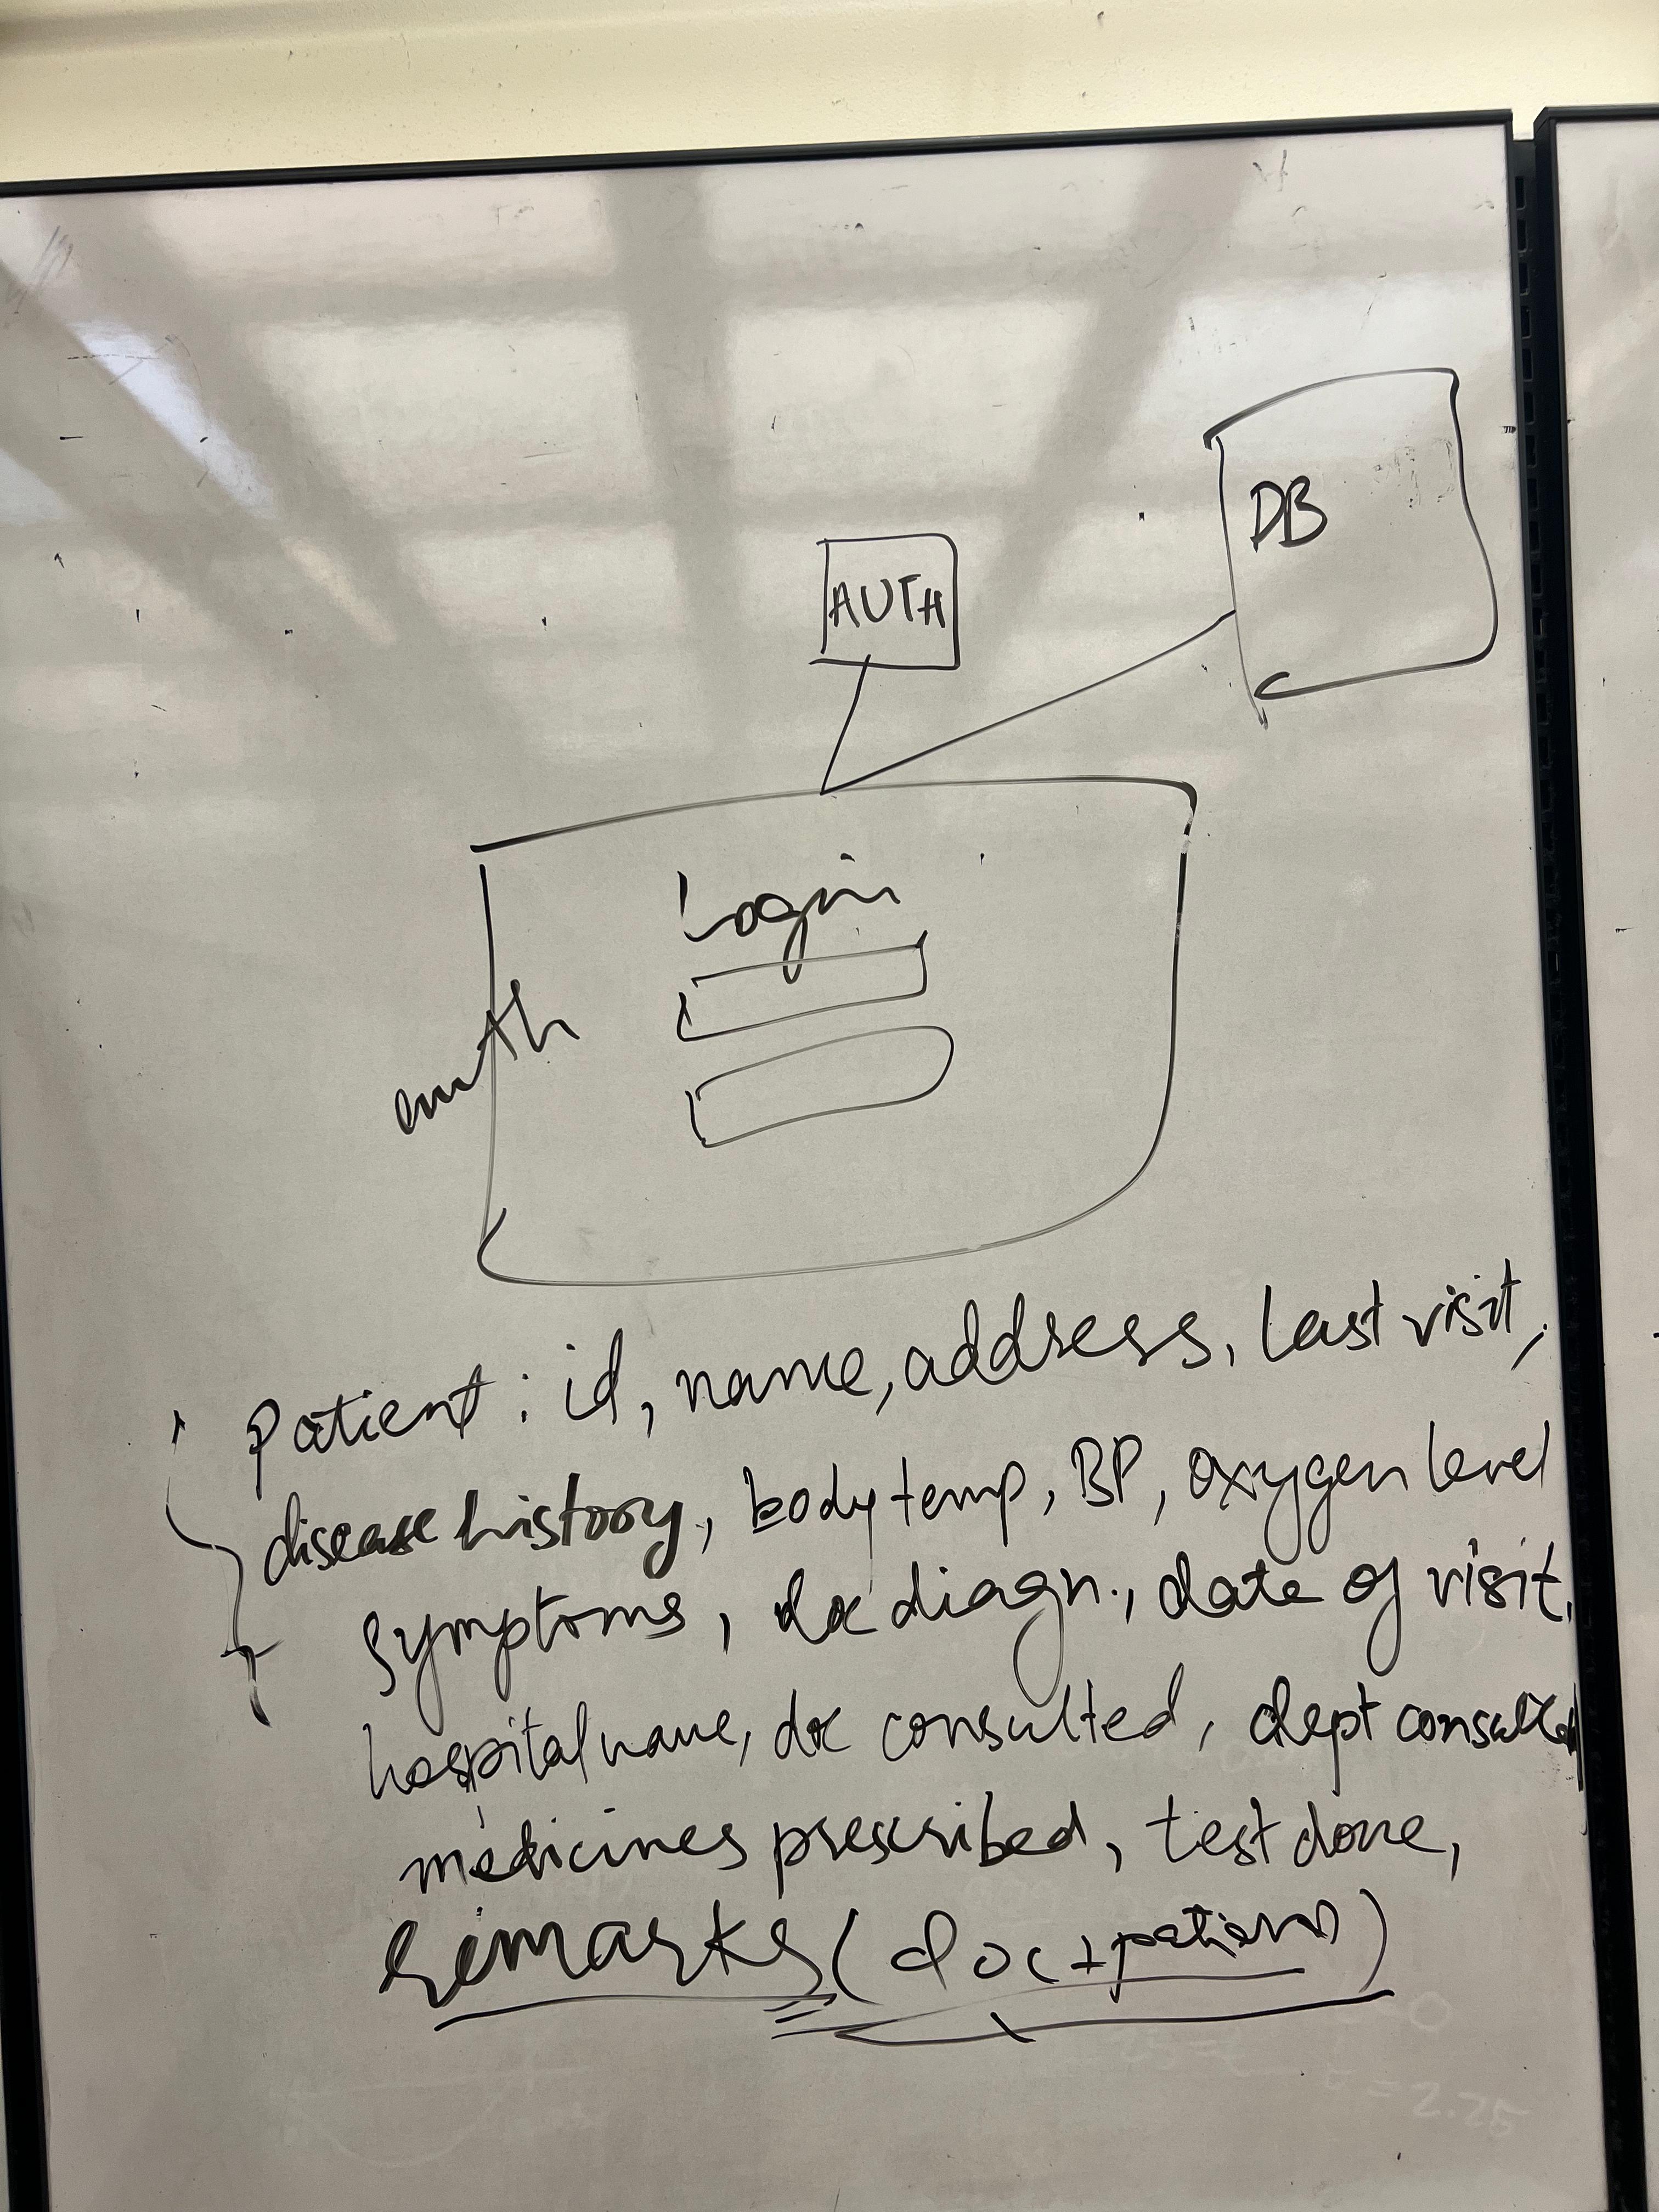 DB
AUTH
Login
auth
Patient: id, name, address, last visit,
disease history, body temp, BP, oxygen level
symptoms, doc diagn., date of visit,
hospital name, doc consulted, dept consulted
medicines prescribed, test done,
remarks (doc + patient)
= 2.25